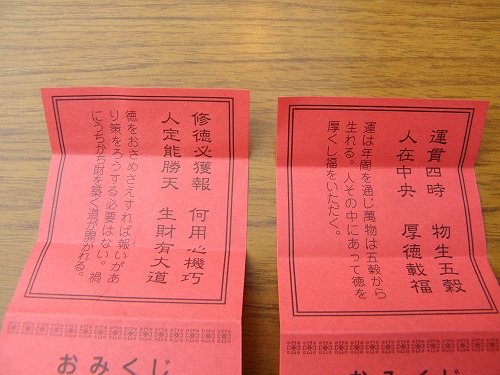 運貫四時　物生五穀
人在中央　厚徳載福
運は年間を通じ萬物は五穀から
生れる。人その中にあって徳を
厚くし福をいただく。
おみくじ
修徳必獲報　何用心機巧
人定能勝天　生財有大道
徳をおさめさえすれば報いがあ
り策をろうする必要はない。禍
にうちかち財を築く道が開かれる。
おみくじ